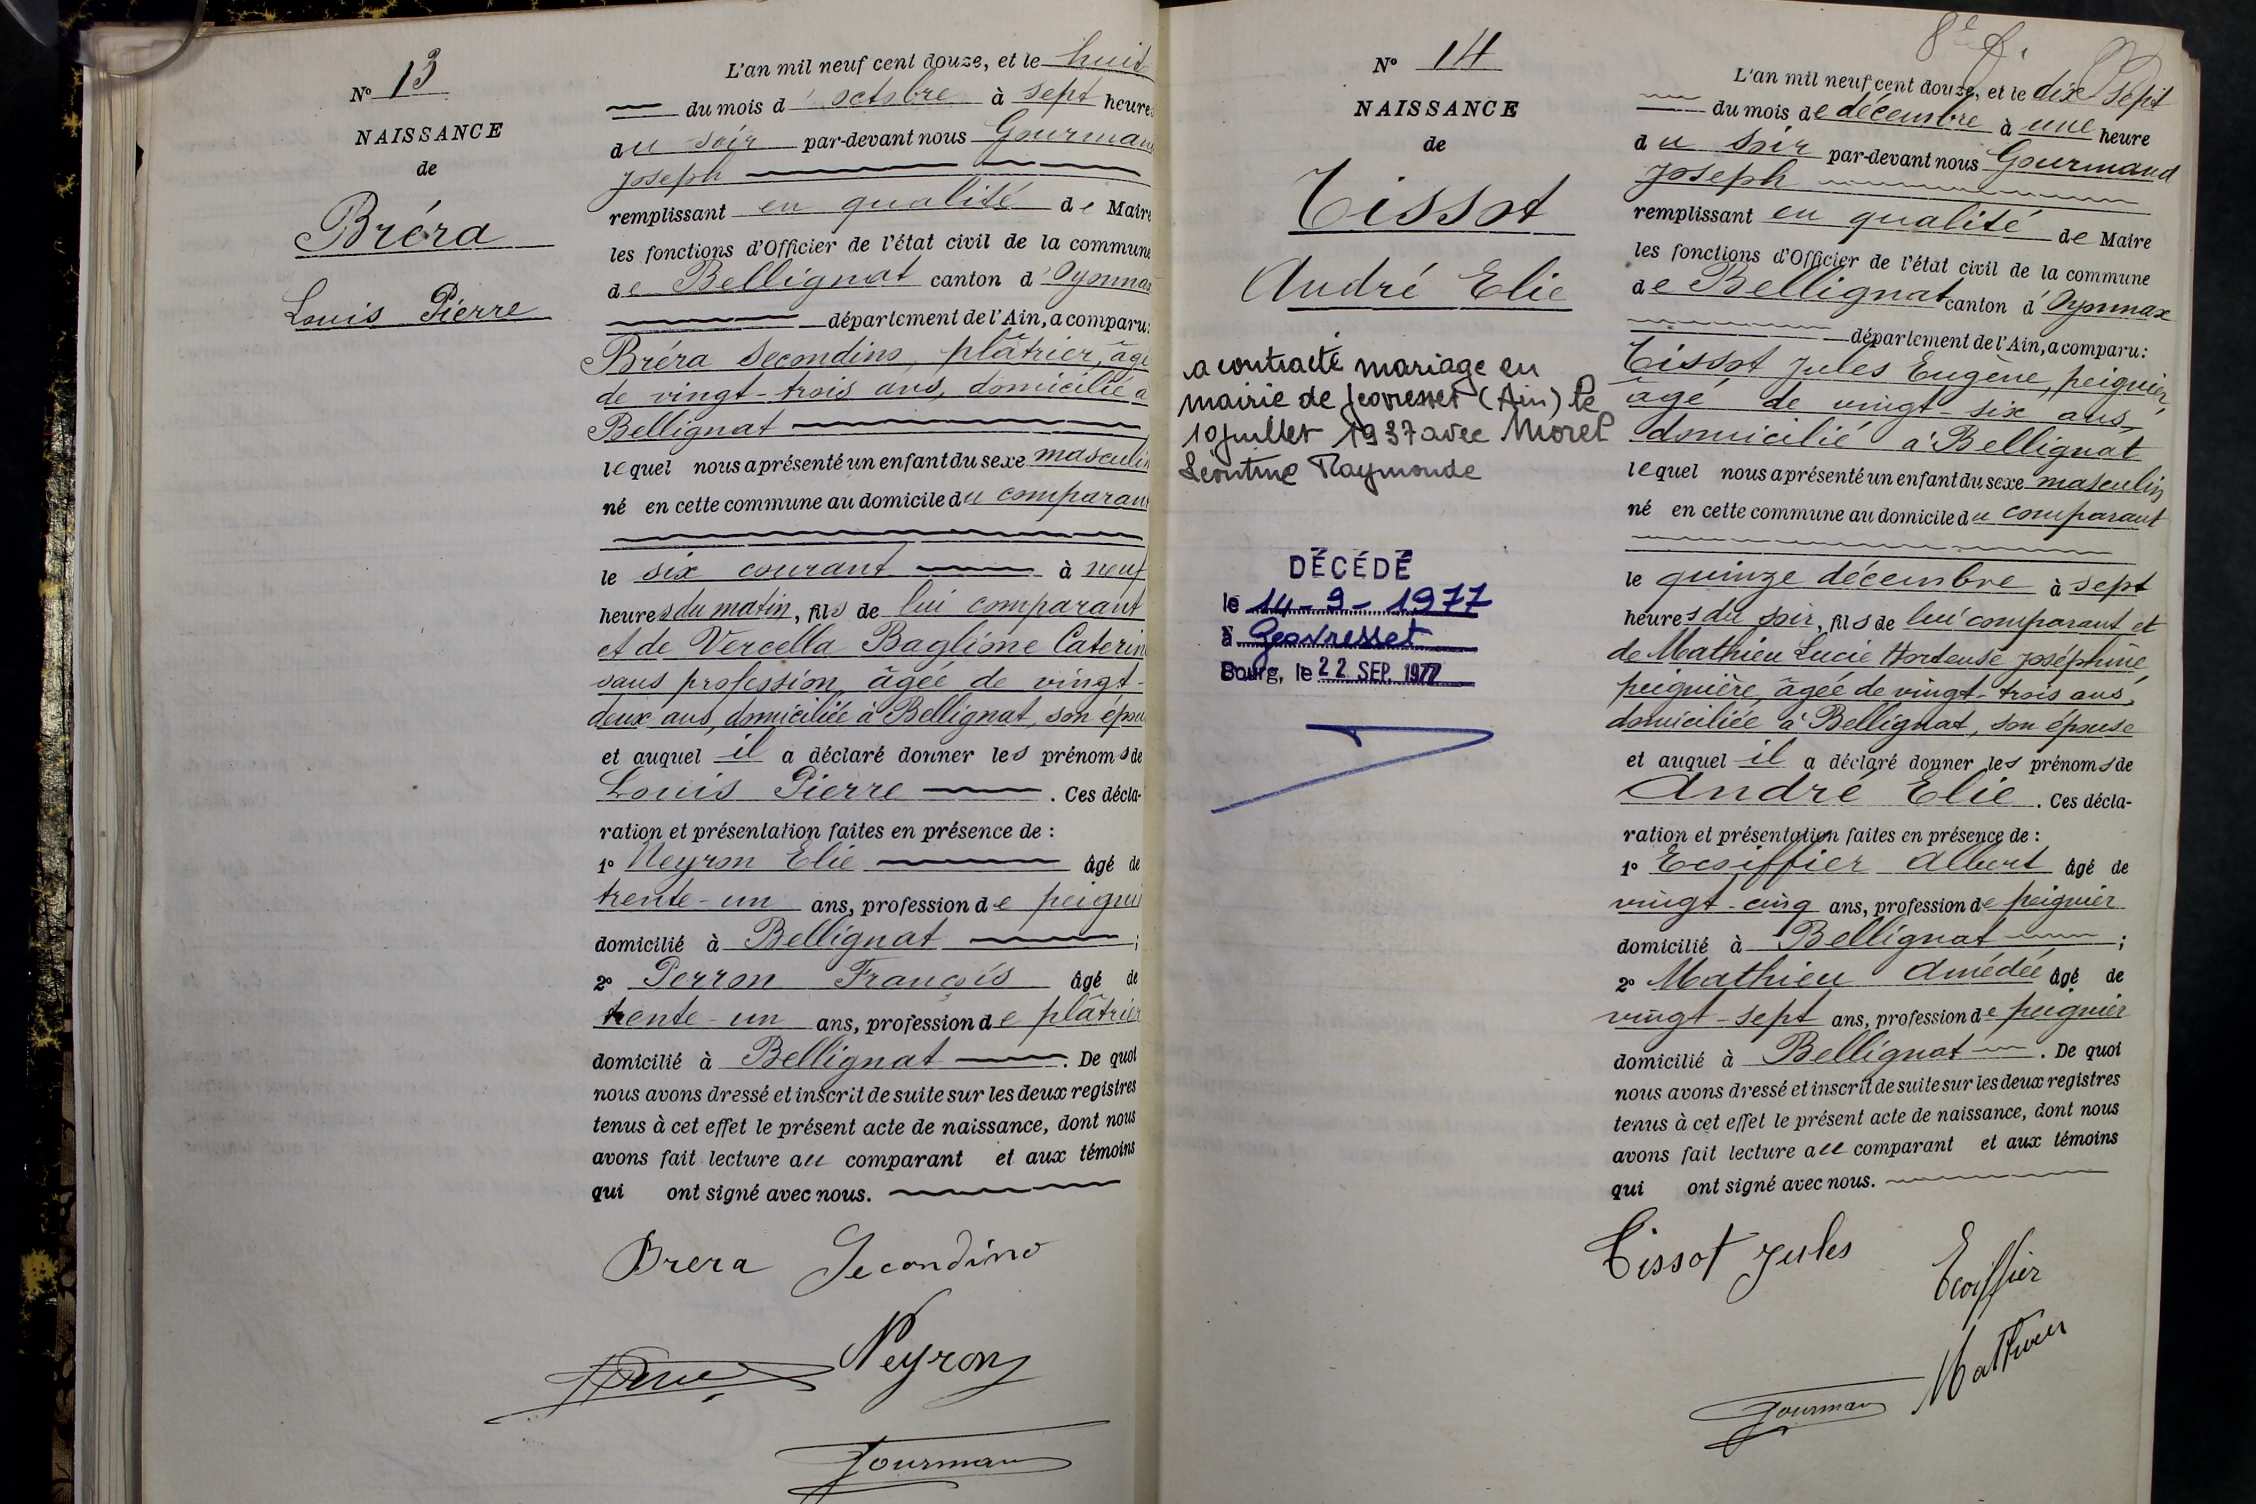 N° 13
NAISSANCE
de
Bréra
Louis Pierre
L'an mil neuf cent douze, et le huit
du mois d'octobre à sept heures
du soir par-devant nous Gourmand
Joseph
remplissant en qualité de Maire
les fonctions d'Officier de l'état civil de la commune
de Bellignat canton d'Oyonnax
département de l'Ain, a comparu:
Bréra Secondino, plâtrier, âgé
de vingt-trois ans, domicilié à
Bellignat
lequel nous a présenté un enfant du sexe masculin
né en cette commune au domicile du comparant
le six courant à neuf
heures du matin, fils de lui comparant
et de Vercella Baglione Caterina
sans profession, âgée de vingt-
deux ans, domiciliée à Bellignat, son épouse
et auquel il a déclaré donner les prénoms de
Louis Pierre . Ces décla-
ration et présentation faites en présence de :
1° Neyron Elie âgé de
trente-un ans, profession de peignier
domicilié à Bellignat ;
2° Perron François âgé de
trente-un ans, profession de plâtrier
domicilié à Bellignat . De quoi
nous avons dressé et inscrit de suite sur les deux registres
tenus à cet effet le présent acte de naissance, dont nous
avons fait lecture au comparant et aux témoins
qui ont signé avec nous.
Brera Secondino
Neyron
Gourmand
8e f.
N° 14
NAISSANCE
de
Tissot
André Elie
a contracté mariage en
mairie de Geovresset (Ain) le
10 juillet 1937 avec Morel
Léontine Raymonde
DÉCÉDÉ
le 14-9-1977
à Geovresset
Bourg, le 22 SEP. 1977
L'an mil neuf cent douze, et le dix sept
du mois de décembre à une heure
du soir par-devant nous Gourmand
Joseph
remplissant en qualité de Maire
les fonctions d'Officier de l'état civil de la commune
de Bellignat canton d'Oyonnax
département de l'Ain, a comparu:
Tissot Jules Eugène, peignier,
âgé de vingt-six ans,
domicilié à Bellignat
lequel nous a présenté un enfant du sexe masculin
né en cette commune au domicile du comparant
le quinze décembre à sept
heures du soir, fils de lui comparant et
de Mathieu Lucie Hortense Joséphine
peignière, âgée de vingt-trois ans,
domiciliée à Bellignat, son épouse
et auquel il a déclaré donner les prénoms de
André Elie . Ces décla-
ration et présentation faites en présence de :
1° Ecoiffier Albert âgé de
vingt-cinq ans, profession de peignier
domicilié à Bellignat ;
2° Mathieu Amédée âgé de
vingt-sept ans, profession de peignier
domicilié à Bellignat . De quoi
nous avons dressé et inscrit de suite sur les deux registres
tenus à cet effet le présent acte de naissance, dont nous
avons fait lecture au comparant et aux témoins
qui ont signé avec nous.
Tissot Jules
Ecoiffier
Mathieu
Gourmand